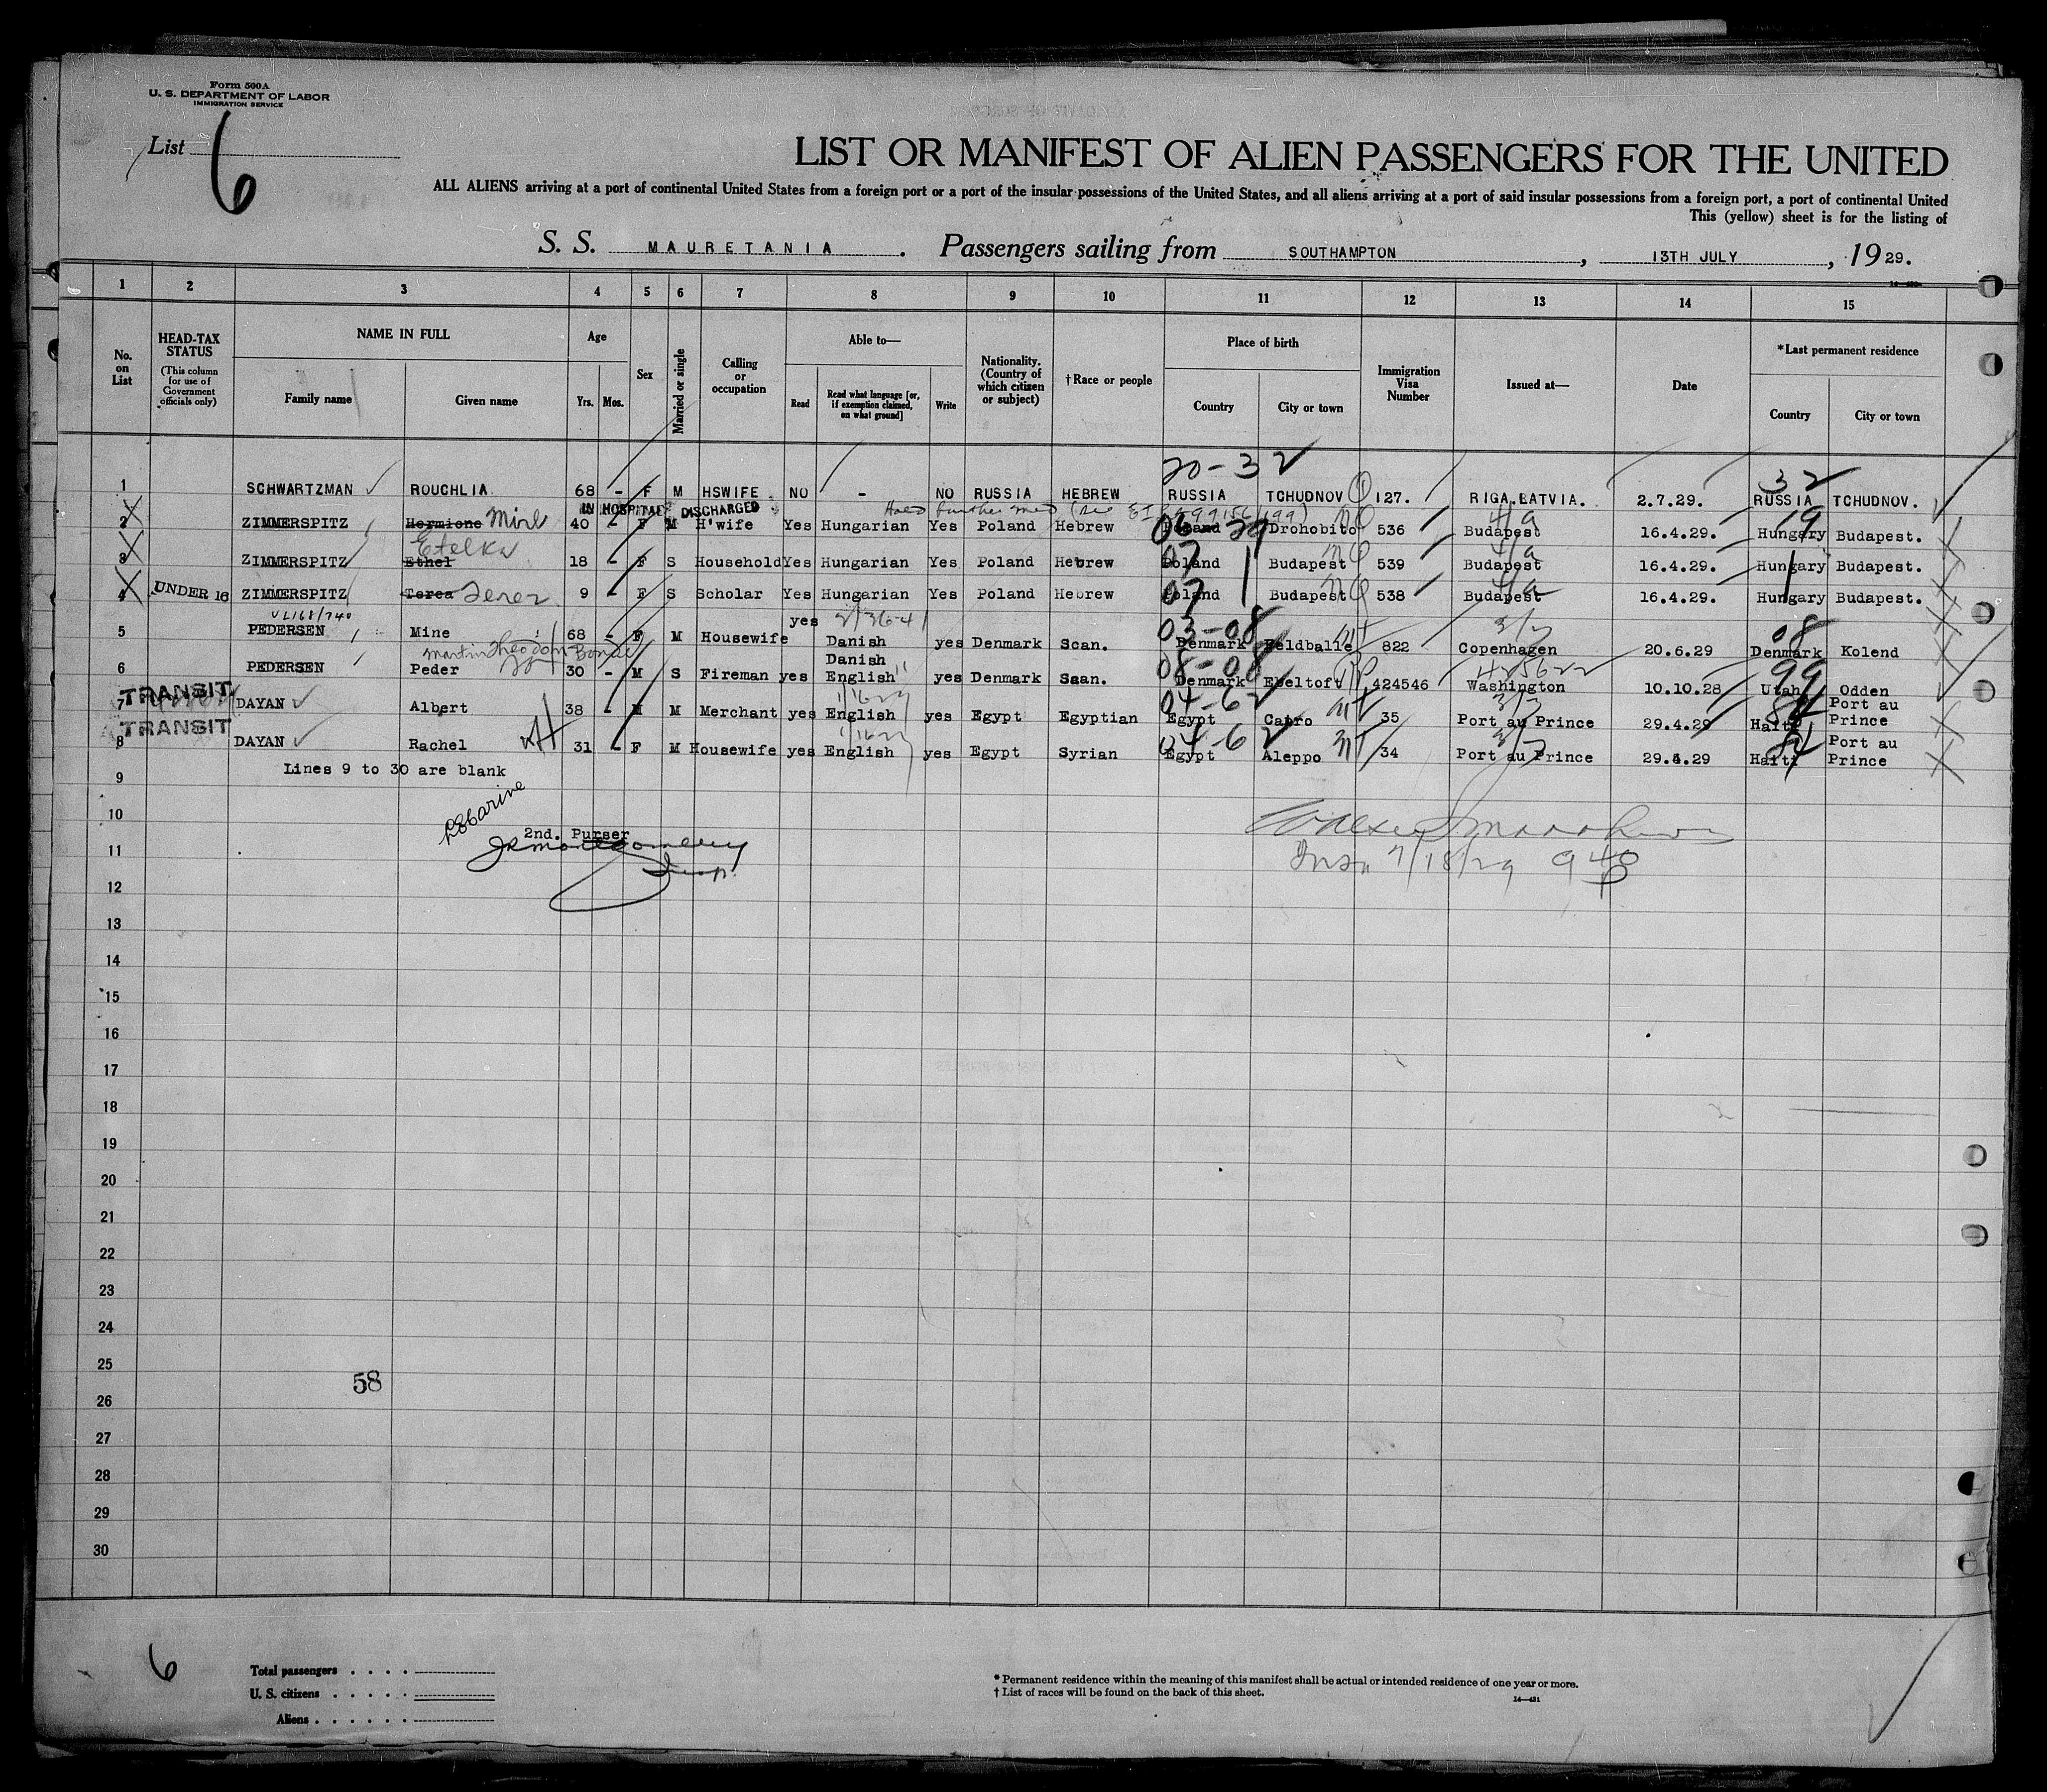 Form 500A
U. S. DEPARTMENT OF LABOR
IMMIGRATION SERVICE
List 6
LIST OR MANIFEST OF ALIEN PASSENGERS FOR THE UNITED
ALL ALIENS arriving at a port of continental United States from a foreign port or a port of the insular possessions of the United States, and all aliens arriving at a port of said insular possessions from a foreign port, a port of continental United
This (yellow) sheet is for the listing of
S. S. MAURETANIA. Passengers sailing from SOUTHAMPTON, 13TH JULY, 1929.
1 2 3 4 5 6 7 8 9 10 11 12 13 14 15
No. on List
HEAD-TAX STATUS (This column for use of Government officials only)
NAME IN FULL
Family name
Given name
Age
Yrs. Mos.
Sex
Married or single
Calling or occupation
Able to—
Read
Read what language [or, if exemption claimed, on what ground]
Write
Nationality. (Country of which citizen or subject)
†Race or people
Place of birth
Country
City or town
Immigration Visa Number
Issued at—
Date
*Last permanent residence
Country
City or town
20-32 32
1 SCHWARTZMAN ROUCHLIA 68 - F M HSWIFE NO - NO RUSSIA HEBREW RUSSIA TCHUDNOV 127. RIGA.LATVIA. 2.7.29. RUSSIA TCHUDNOV.
IN HOSPITAL DISCHARGED
2 ZIMMERSPITZ Hermione Mirl 40 - F M H'wife Yes Hungarian Yes Poland Hebrew Poland Drohobito 536 Budapest 16.4.29. Hungary Budapest.
Etelka
3 ZIMMERSPITZ Ethel 18 - F S Household Yes Hungarian Yes Poland Hebrew 07 Poland Budapest 539 Budapest 16.4.29. Hungary Budapest.
4 UNDER 16 ZIMMERSPITZ Terea Terez 9 - F S Scholar Yes Hungarian Yes Poland Hebrew 07 Poland Budapest 538 Budapest 16.4.29. Hungary Budapest.
03-08 08
5 PEDERSEN Mine 68 - F M Housewife yes Danish yes Denmark Scan. Denmark Feldballe 822 Copenhagen 20.6.29 Denmark Kolend
Martin Theodor Bonde
08-08 99
6 PEDERSEN Peder 30 - M S Fireman yes Danish English yes Denmark Scan. Denmark Ebeltoft 424546 Washington 10.10.28 Utah Odden
TRANSIT
04-62
7 DAYAN Albert 38 - M M Merchant yes English yes Egypt Egyptian Egypt Cairo 35 Port au Prince 29.4.29 Haiti Port au Prince
TRANSIT
04-62
8 DAYAN Rachel 31 - F M Housewife yes English yes Egypt Syrian Egypt Aleppo 34 Port au Prince 29.4.29 Haiti Port au Prince
9 Lines 9 to 30 are blank
10
2nd. Purser
11 JRMontgomery
Insp.
Insp 7/18/29 940
12
13
14
15
16
17
18
19
20
21
22
23
24
25
58
26
27
28
29
30
6
Total passengers
U. S. citizens
Aliens
* Permanent residence within the meaning of this manifest shall be actual or intended residence of one year or more.
† List of races will be found on the back of this sheet.
14—431